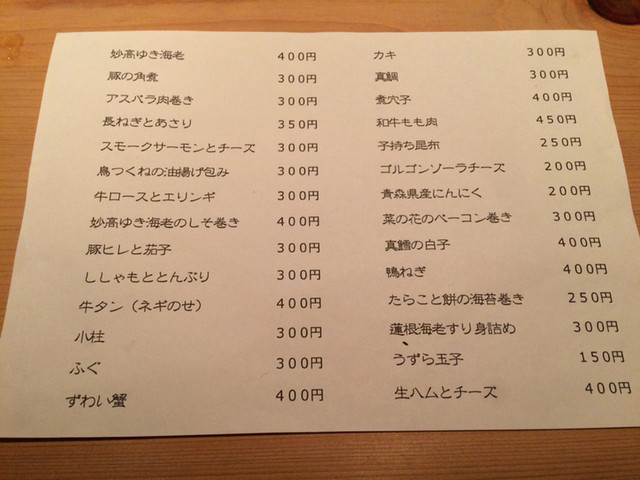 妙高ゆき海老 400円
豚の角煮 300円
アスパラ肉巻き 300円
長ねぎとあさり 350円
スモークサーモンとチーズ 300円
鳥つくねの油揚げ包み 300円
牛ロースとエリンギ 300円
妙高ゆき海老のしそ巻き 400円
豚ヒレと茄子 300円
ししゃもととんぶり 300円
牛タン（ネギのせ） 400円
小柱 300円
ふぐ 300円
ずわい蟹 400円
カキ 300円
真鯛 300円
煮穴子 400円
和牛もも肉 450円
子持ち昆布 250円
ゴルゴンゾーラチーズ 200円
青森県産にんにく 200円
菜の花のベーコン巻き 300円
真鱈の白子 400円
鴨ねぎ 400円
たらこと餅の海苔巻き 250円
蓮根海老すり身詰め 300円
うずら玉子 150円
生ハムとチーズ 400円